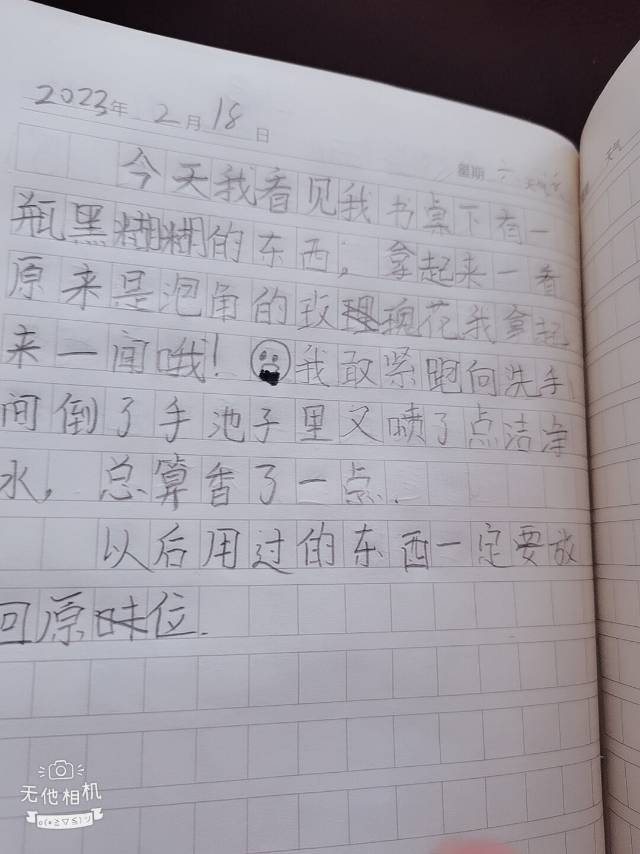 2023年 2月 18日 星期 六 天气 天气
今天我看见我书桌下有一
瓶黑糊糊的东西，拿起来一看
原来是泡角的玫瑰花我拿起
来一闻哦！我敢紧跑向洗手
间倒了手池子里又喷了点洁净
水，总算香了一点.
以后用过的东西一定要放
回原位.
无他相机